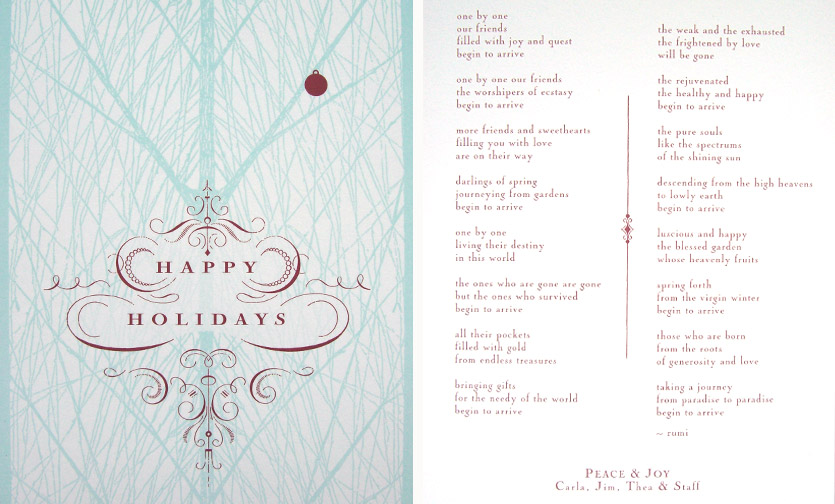 HAPPY
HOLIDAYS
one by one
our friends
filled with joy and quest
begin to arrive
one by one our friends
the worshipers of ecstasy
begin to arrive
more friends and sweethearts
filling you with love
are on their way
darlings of spring
journeying from gardens
begin to arrive
one by one
living their destiny
in this world
the ones who are gone are gone
but the ones who survived
begin to arrive
all their pockets
filled with gold
from endless treasures
bringing gifts
for the needy of the world
begin to arrive
the weak and the exhausted
the frightened by love
will be gone
the rejuvenated
the healthy and happy
begin to arrive
the pure souls
like the spectrums
of the shining sun
descending from the high heavens
to lowly earth
begin to arrive
luscious and happy
the blessed garden
whose heavenly fruits
spring forth
from the virgin winter
begin to arrive
those who are born
from the roots
of generosity and love
taking a journey
from paradise to paradise
begin to arrive
~ rumi
PEACE & JOY
Carla, Jim, Thea & Staff